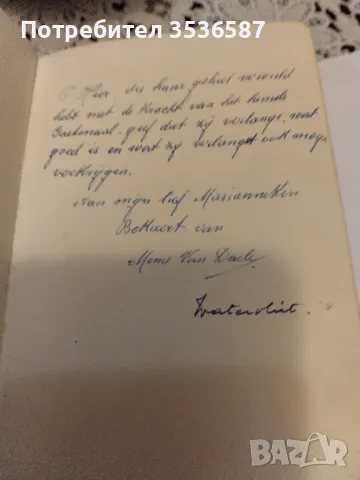 Потребител 3536587
O Heer, die haar geheel vervuld
hebt met de kracht van het
geef dat zij verlange, wat
goed is en wat zij verlangt ook moge
verkrijgen.
Aan mijn lief Marianneken
Bekaert van
Meme Van Daele
Watervliet.
BAZAR
bg